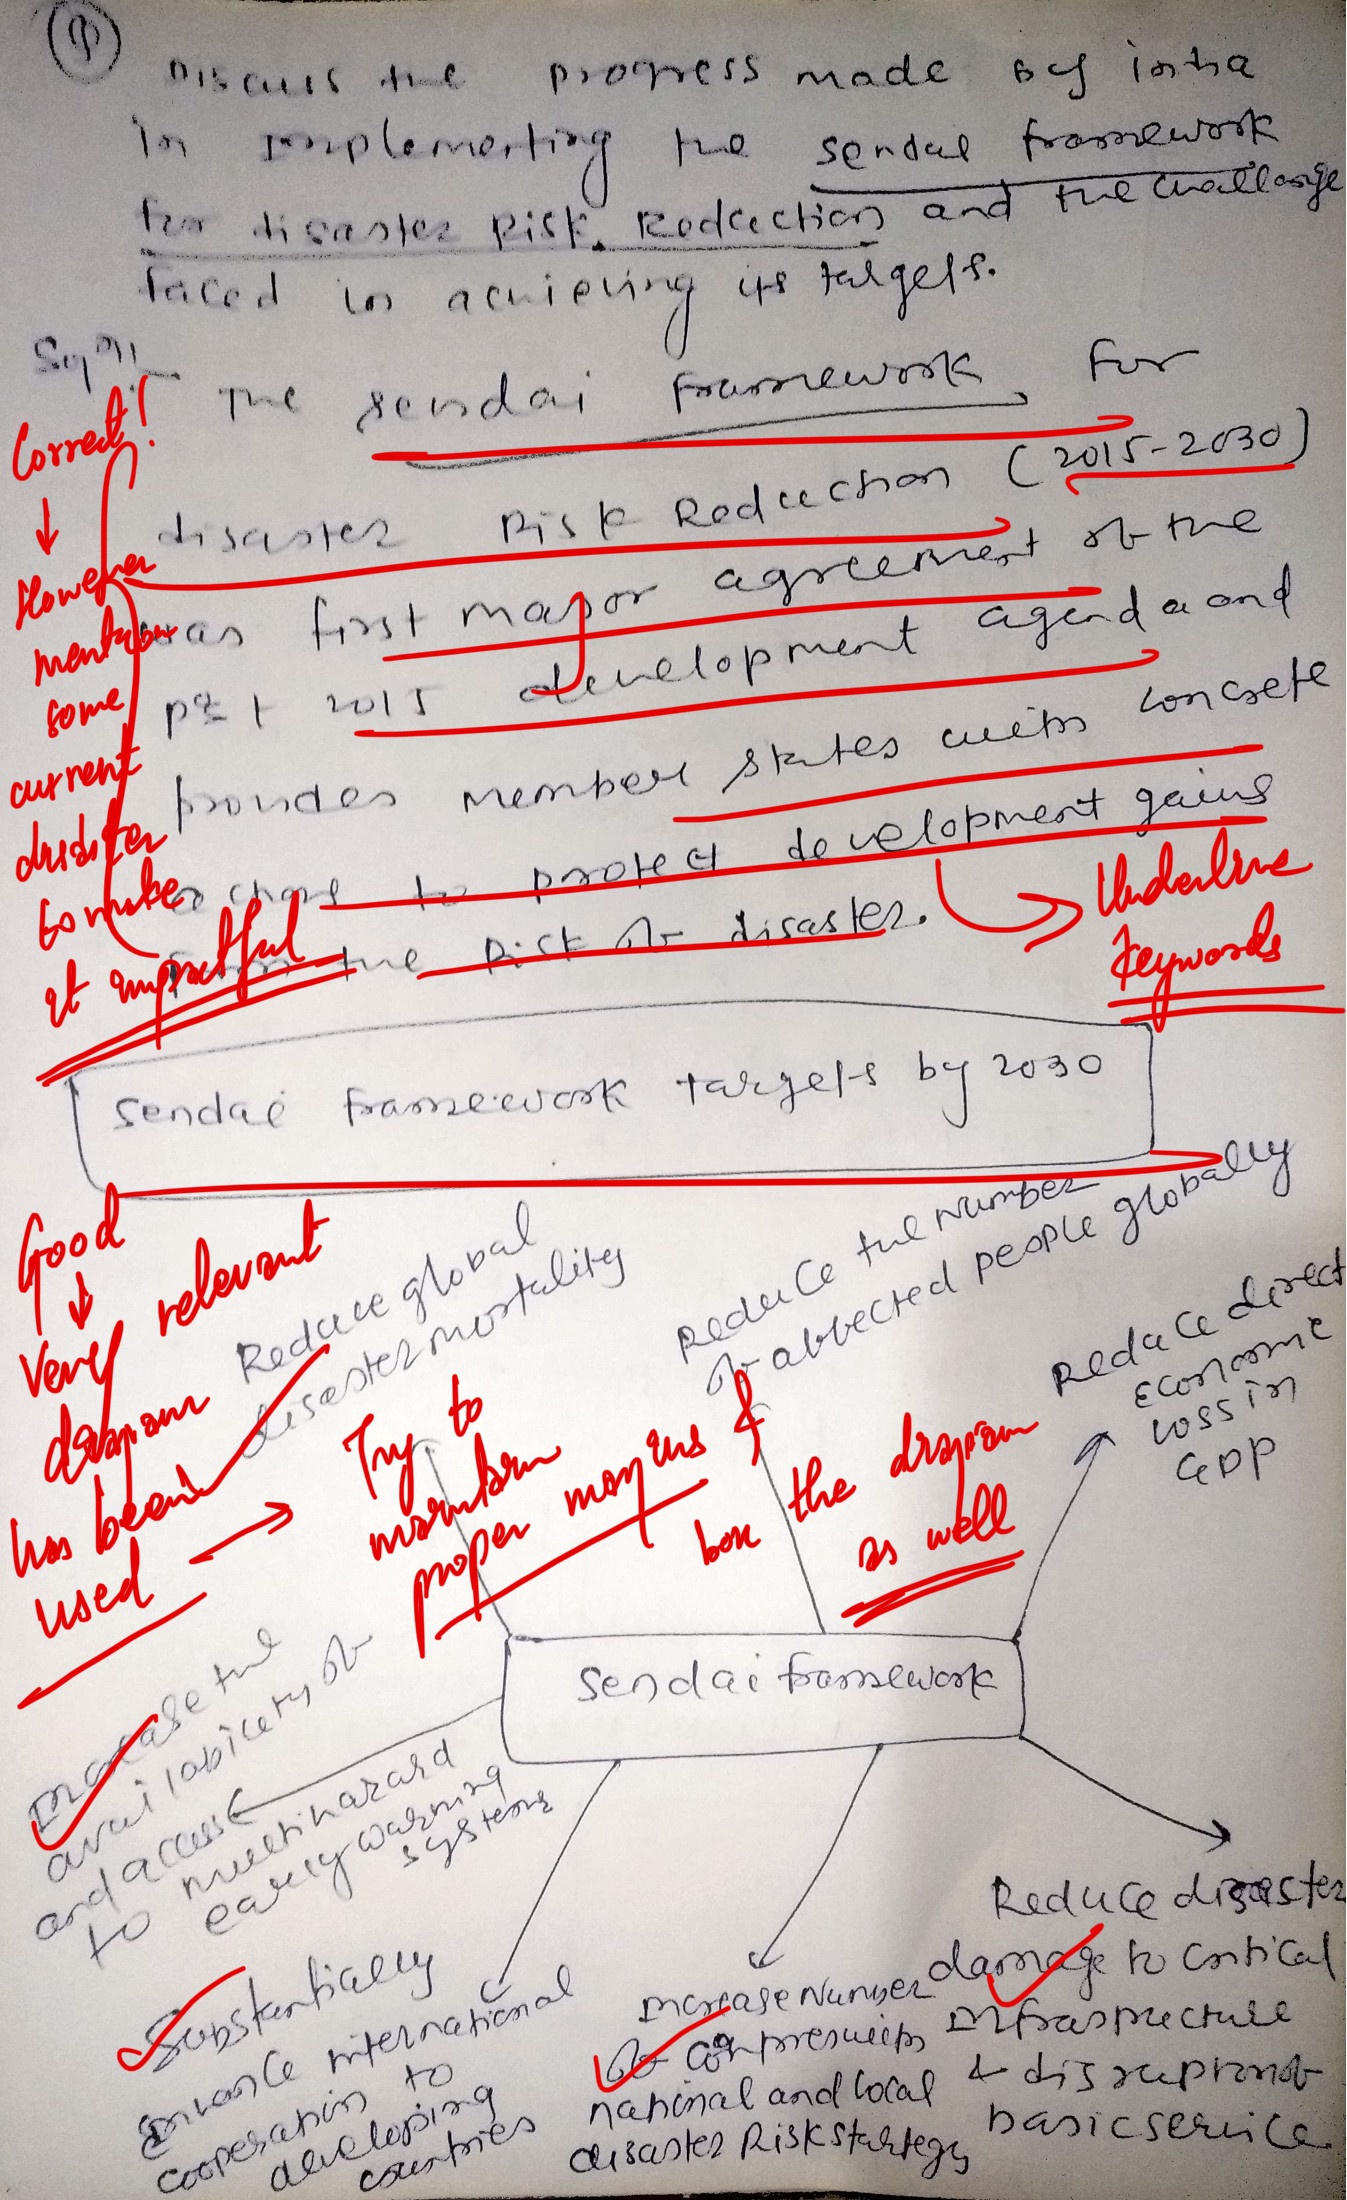 9
Discuss the progress made by india
in implementing the sendai framework
for disaster Risk Reduction and the challange
faced in achieving its targets.
The sendai framework for
disaster Risk Reduction (2015-2030)
was first major agreement of the
2015 development agenda and
provides member states with concrete
actions to protect development gains
from the Risk of disaster.
Correct!
However
mention
some
current
disaster
to make
it impactful
Underline
keywords
sendai framework targets by 2030
Good
Very relevant
diagram
has been
used
Try to
maintain
proper margins &
box the diagram
as well
Reduce global
disaster mortality
Reduce the number
of affected people globally
Reduce direct
Economic
loss in
GDP
sendai framework
Increase the
availability of
and access
to multihazard
early warning
systems
Substantially
Enhance international
cooperation to
developing
countries
Increase number
of countries with
national and local
disaster Risk strategy
Reduce disaster
damage to critical
Infrastructure
& disruption of
basic service